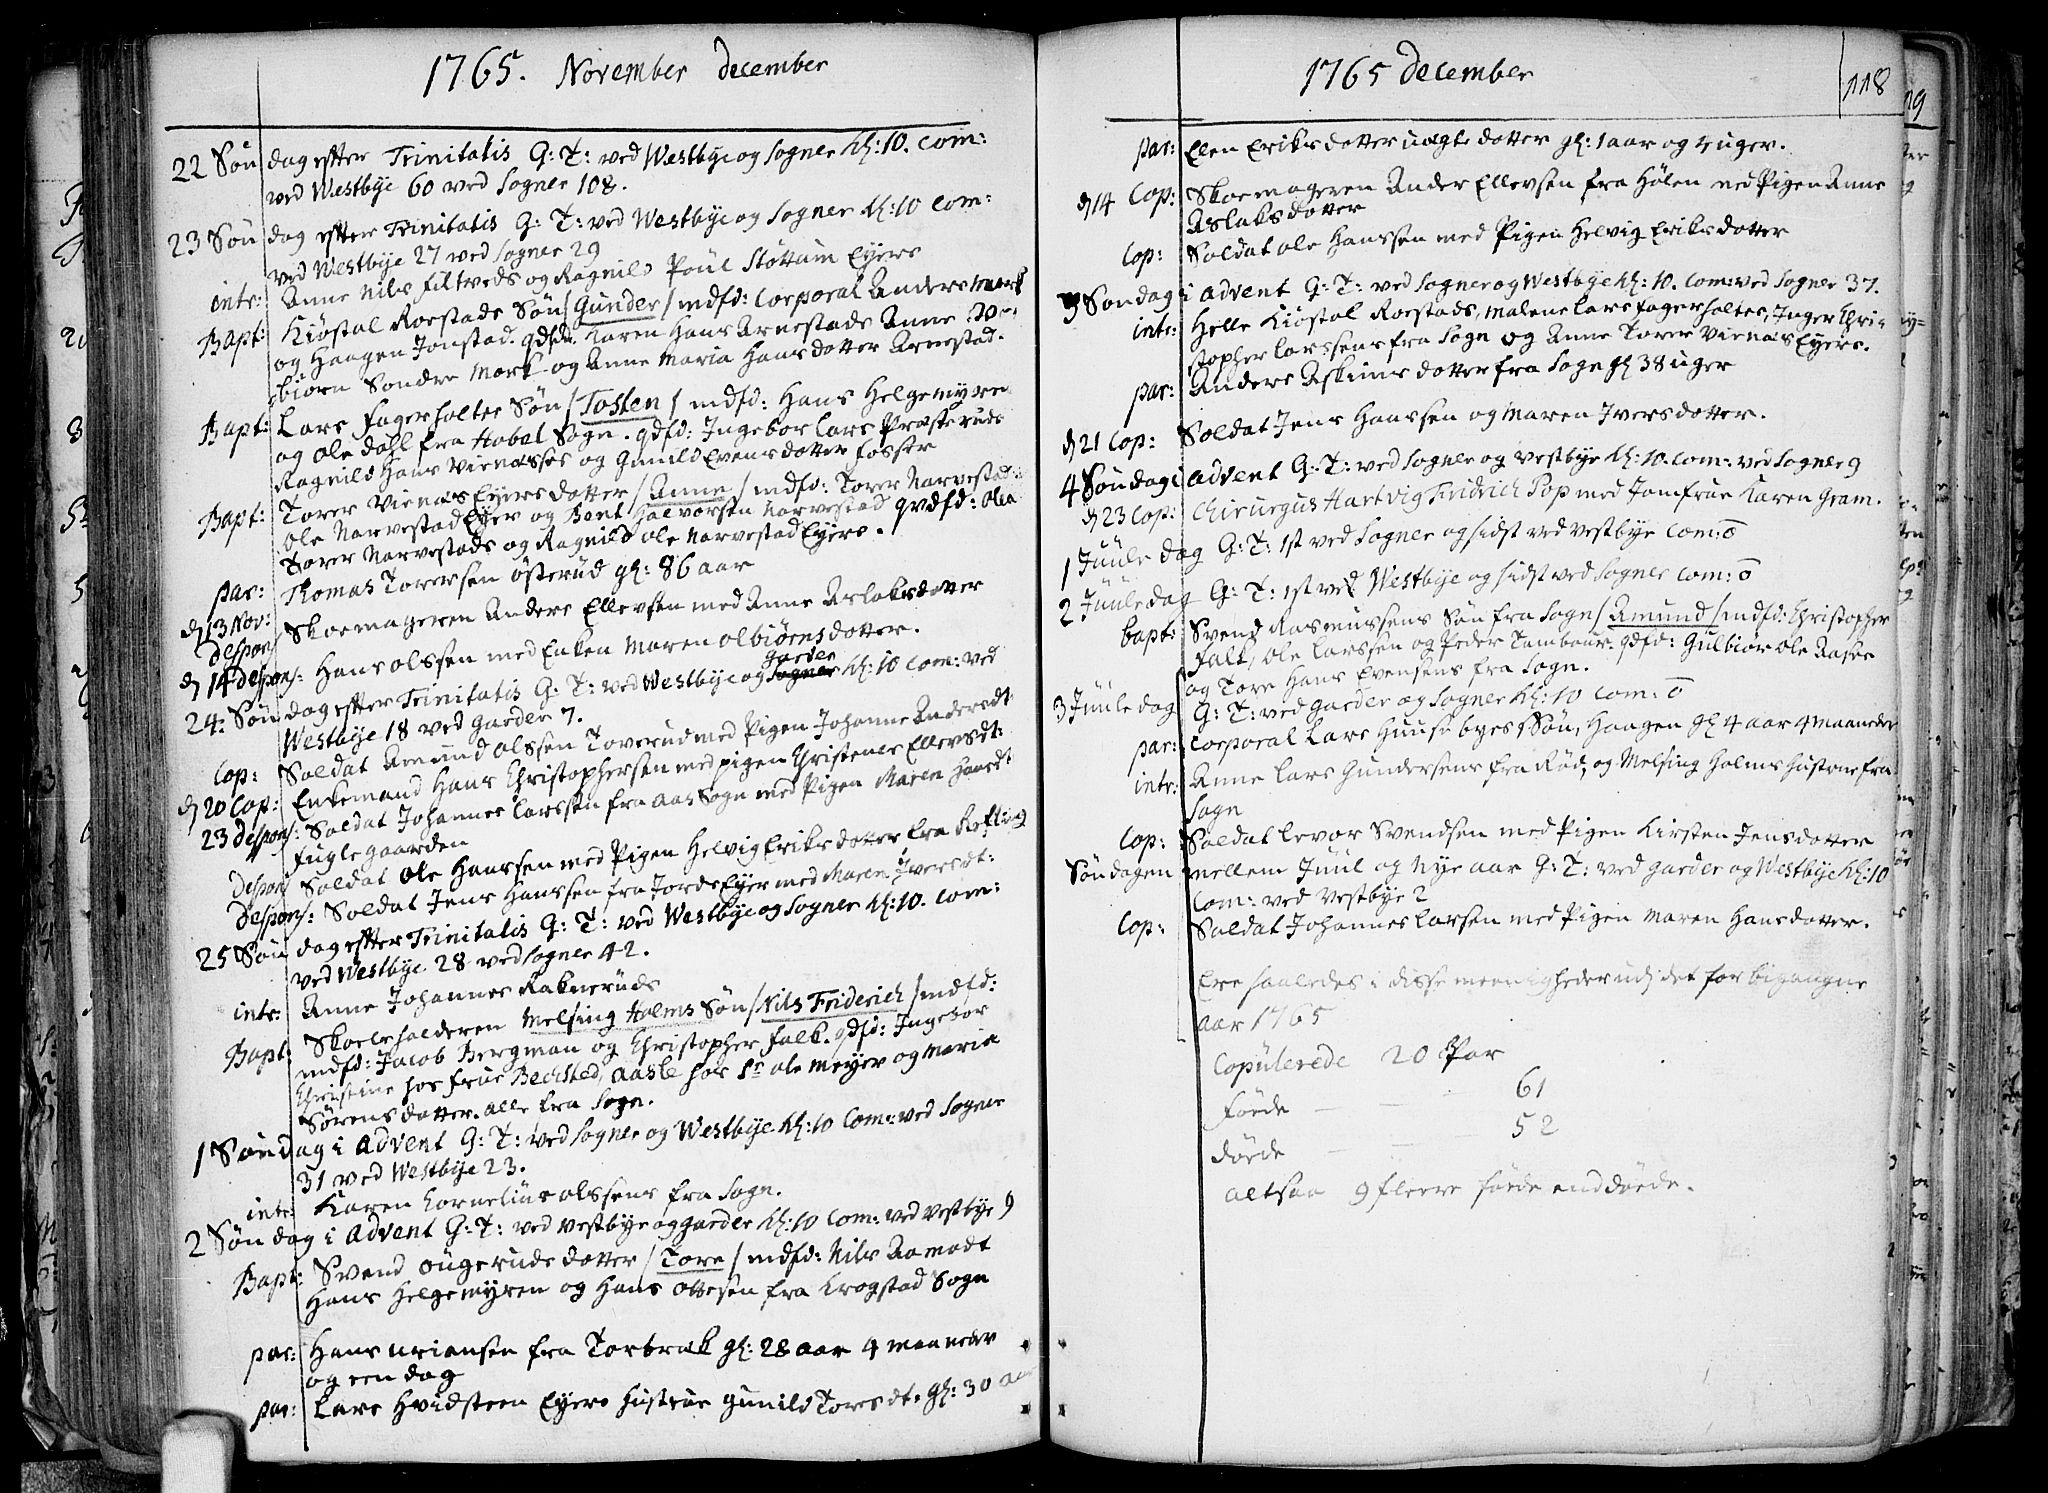 1765. November December
22 Søndag efter Trinitatis G: T: ved Westbye og Sogner Kl: 10. Com:
ved Westbye 60 ved Sogner 108.
23 Søndag efter Trinitatis G: T: ved Westbye og Sogner Kl: 10 Com:
ved Westbye 27 ved Sogner 29
intr: Anne Nils Filtveds og Ragnild Poul Støttum Eyers
Bapt: Kiøstol Roestads Søn / Gunder / mdfd: Corporal Anders Mork
og Haagen Jonstad. qdfd: Karen Hans Arnestads Anne Tor-
biørn Sondre Mork og Anne Maria Hansdotter Arnestad.
Bapt: Lars Fagerholtes Søn / Tosten / mdfd: Hans Helgemyren
og Ole Dahl fra Hobøl Sogn. qdfd: Ingebor Lars Præsteruds
Ragnild Hans Viernæsses og Gunild Evensdotter Fosser
Bapt: Torer Viernæs Eyers dotter / Anne / mdfd: Torer Narvestad
Ole Narvestad Eyer og Bent Halvorsen Narvestad qvdfd: Olia
Torer Narvestads og Ragnild Ole Narvestad Eyers.
par: Thomas Torersen Østerud gl: 86 aar
d 13 Nov:
despons Skoemageren Anders Ellevsen med Anne Aslaksdotter
d 14 despons: Hans Olssen med Enken Maren Olbiørnsdotter.
Garder
24: Søndag efter Trinitatis G: T: ved Westbye og Sogner Kl: 10 Com: ved
Westbye 18 ved Garder 7.
Cop: Soldat Amund Olssen Toverud med Pigen Johanne Andersdt
d 20 Cop: Enkemand Hans Christophersen med pigen Christense Ellevsdt:
23 despons: Soldat Johannes Larssen fra Aas Sogn med Pigen Maren Hansdt
Fuglegaarden
Despons Soldat Ole Hanssen med Pigen Helvig Eriksdotter fra Kefting
Despons: Soldat Jens Hanssen fra Jords Eyer med Maren Iversdt:
25 Søndag efter Trinitatis G: T: ved Westbye og Sogner Kl: 10. Com:
ved Westbye 28 ved Sogner 42.
intr: Anne Johannes Rakneruds
Bapt: Skoeleholderen Melsing Holms Søn / Nils Friderich / mdfd:
mdfd: Jacob Bergman og Christopher Falk. qdfd: Ingebor
Christine hos Frue Bechsted, Aasle hos Sr Ole Meyer og Maria
Sørensdotter. alle fra Sogn.
1 Søndag i Advent G: T: ved Sogner og Westbye Kl: 10 Com: ved Sogner
31 ved Westbye 23.
intr: Karen Cornelius Olssens fra Sogn.
2 Søndag i Advent G: T: ved Vestbye og Garder Kl: 10 Com: ved Vestbye 9
Bapt: Svend Ougeruds dotter / Tore / mdfd: Nils Aamodt
Hans Helgemyren og Hans Ottesen fra Krogstad Sogn
par: Hans Uriansen fra Torbræk gl: 28 aar 4 maaneder
og een dag
par: Lars Hvidsteen Eyers Hustrue Gunild Toresdt. gl: 30 aar
1765 December
118
par: Elen Eriksdotter uægte dotter gl: 1 aar og 4 uger.
d 14 Cop: Skoemageren Anders Ellevsen fra Hølen med Pigen Anne
Aslaksdotter
Cop: Soldat Ole Hanssen med Pigen Helvig Eriksdotter
3 Søndag i Advent G: T: ved Sogner og Westbye Kl: 10. Com: ved Sogner 37.
intr: Helle Kiøstol Roestads, Malene Lars Fagerholtes, Inger Chri-
stopher Larssens fra Sogn og Anne Torer Viernæs Eyers.
par: Anders Askims dotter fra Sogn gl 38 uger
d 21 Cop: Soldat Jens Hanssen og Maren Iversdotter.
4 Søndag i Advent G: T: ved Sogner og Vestbye Kl: 10. Com: ved Sogner 9
d 23 Cop: Chirurgus Hartvig Fridrich Pop med Jomfrue Karen Gram.
1 Juule dag G: T: 1st ved Sogner og sidst ved Vestbye Com: 0
2 Juule dag G: T: 1st ved Westbye og sidst ved Sogner Com: 0
bapt: Svend Rasmussens Søn fra Sogn / Amund / mdfd: Christopher
Falk, Ole Larssen og Peder Tambour. qdfd: Gulbiør Ole Aases
og Tore Hans Evensens fra Sogn.
3 Juule dag G: T: ved Garder og Sogner Kl: 10 Com: 0
par: Corporal Lars Huusebyes Søn, Haagen gl 4 aar 4 maaneder
intr: Anne Lars Gundersens fra Rød, og Melsing Holms Hustrue fra
Sogn
Cop: Soldat Levor Svendsen med Pigen Kirsten Jensdotter
Søndagen mellem Juul og Nye aar G: T: ved Garder og Westbye Kl: 10
Com: ved Vestbye 2
Cop: Soldat Johannes Larsen med Pigen Maren Hansdotter.
Ere saaledes i disse meenigheder udj det forbigangne
aar 1765
Copulerede 20 Par
Fødde 61
Døde 52
altsaa 9 fleere fødde end døde.